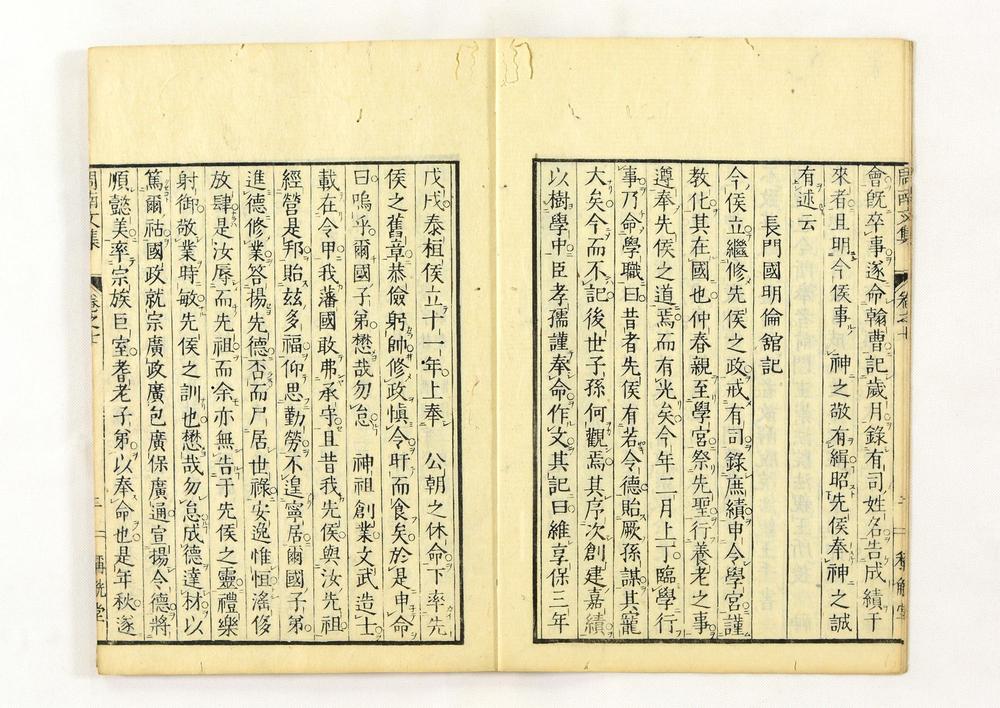 會既卒事遂命翰曹記歲月錄有司姓名告成績于
來者且明今侯事神之敬有緝昭先侯奉神之誠
有述云
長門國明倫舘記
今侯立繼修先侯之政戒有司錄庶績申令學宮謹
教化其在國也仲春親至學宮祭先聖行養老之事
遵奉先侯之道焉而有光矣今年二月上丁臨學行
事乃命學職曰昔者先侯有若令德貽厥孫謀其寵
大矣今而不記後世子孫何觀焉其序次創建嘉績
以樹學中臣孝孺謹奉命作文其記曰維享保三年
戊戌泰桓侯立十一年上奉公朝之休命下率先
侯之舊章恭儉躬帥修政愼令旰而食矣於是申命
曰嗚乎爾國子弟懋哉勿怠神祖創業文武造士
載在令甲我藩國敢弗承守且昔我先侯與汝先祖
經營是邦貽玆多福仰思勤勞不遑寧居爾國子弟
進德修業答揚先德否而尸居世祿安逸惟怛滛侈
放肆是汝辱而先祖而余亦無告于先侯之靈禮樂
射御敬業時敏先侯之訓也懋哉勿怠成德達材以
篤爾祜國政就宗廣政廣包廣保廣通宣揚令德將
順懿美率宗族巨室耆老子弟以奉命也是年秋遂
周南文集
卷之七
二
稱觥堂